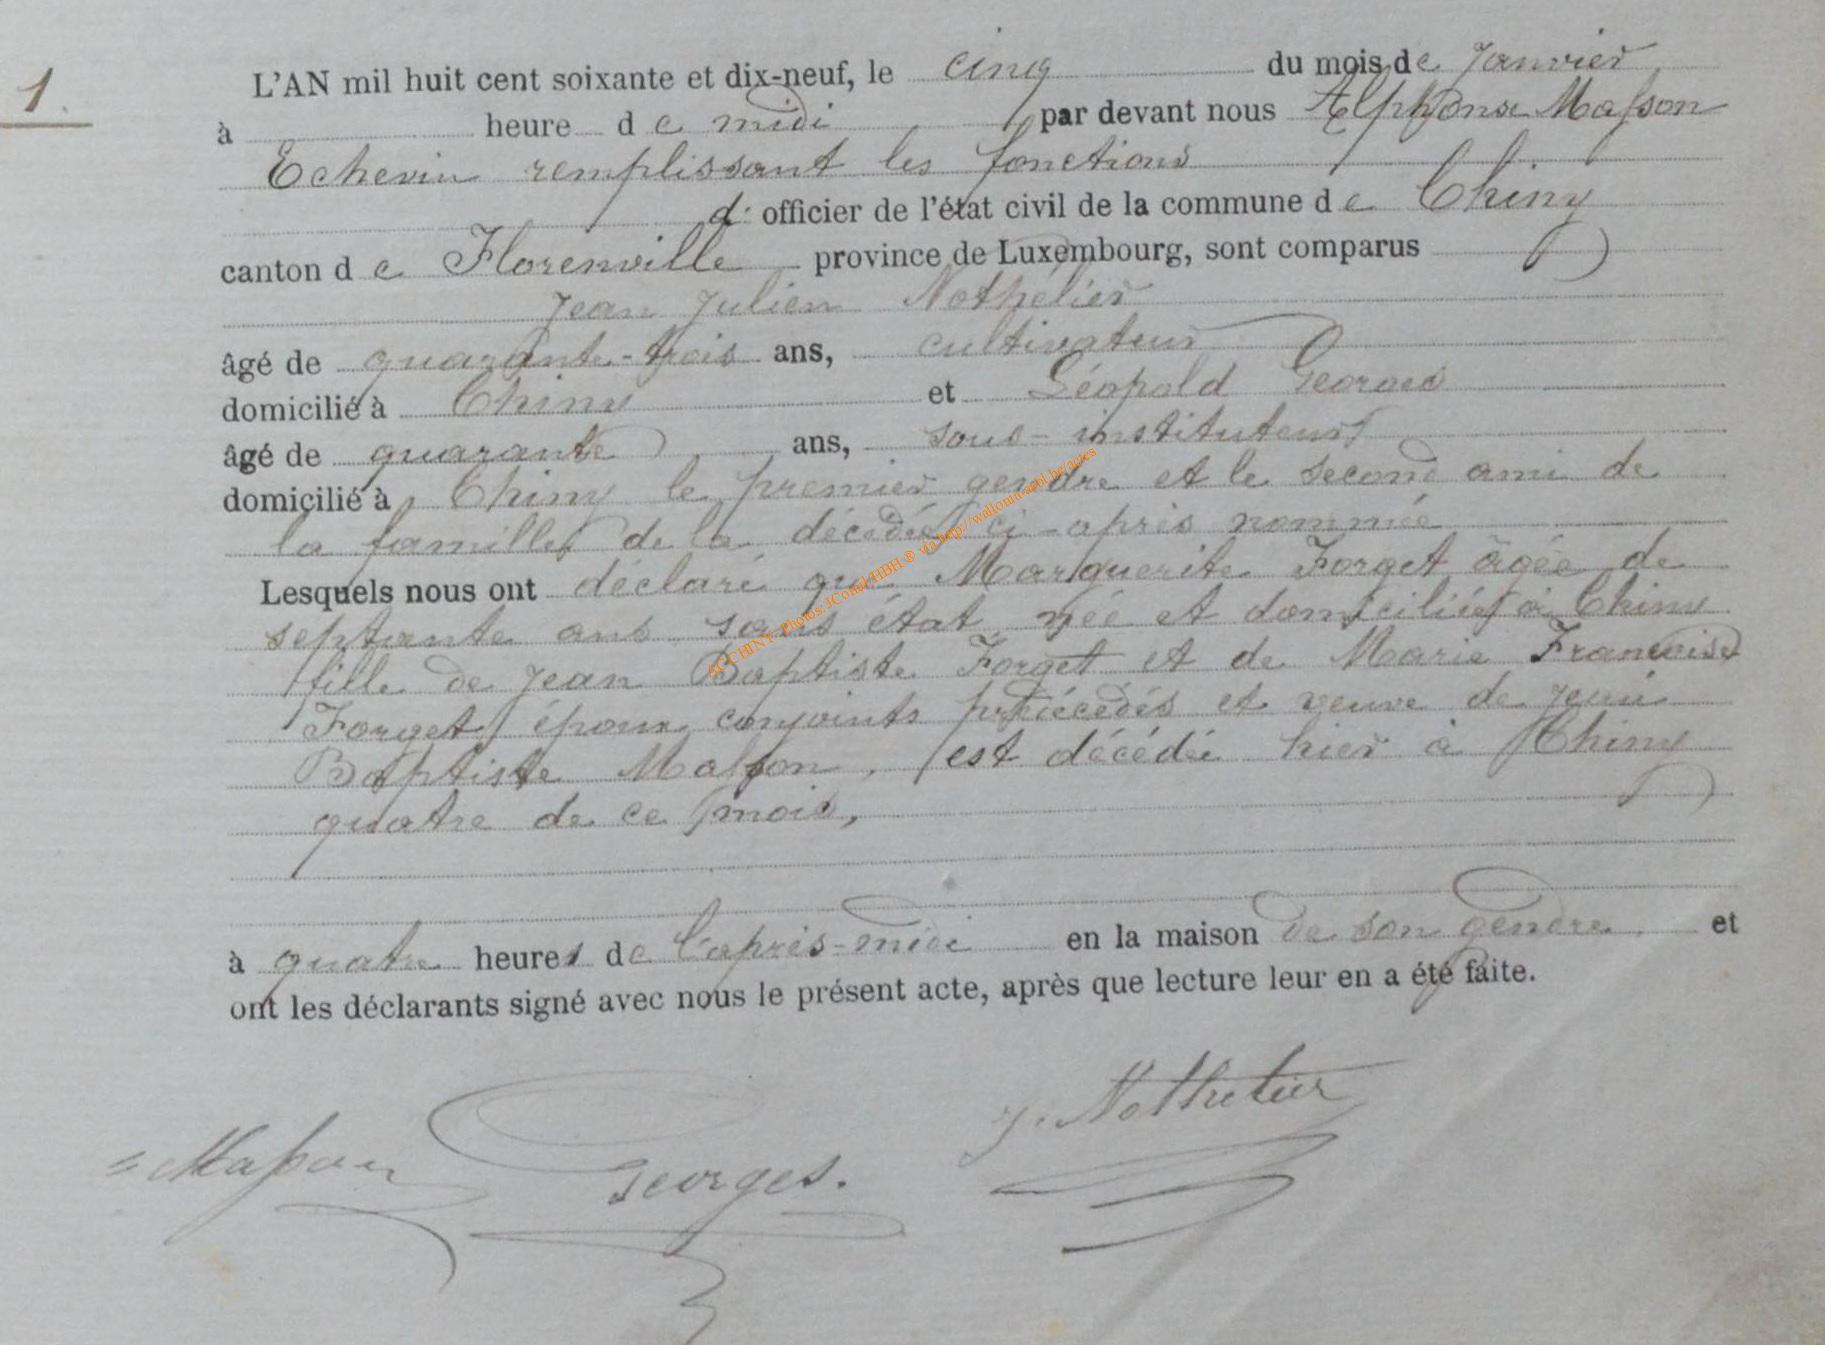 1.
L'AN mil huit cent soixante et dix-neuf, le cinq du mois de Janvier
à heure de midi par devant nous Alphonse Masson
Echevin remplissant les fonctions
d' officier de l'état civil de la commune de Chiny
canton de Florenville province de Luxembourg, sont comparus
Jean Julien Nothelier
âgé de quarante-trois ans, cultivateur
domicilié à Chiny et Léopold Georges
âgé de quarante ans, sous-instituteur
domicilié à Chiny le premier gendre et le second ami de
la famille de la décédée ci-après nommée
Lesquels nous ont déclaré que Marguerite Forget âgée de
septante ans sans état née et domiciliée à Chiny
fille de Jean Baptiste Forget et de Marie Francoise
Forget époux conjoints prédécédés et veuve de Jean
Baptiste Masson, est décédée hier à Chiny
quatre de ce mois,
à quatre heures de l'après-midi en la maison de son gendre. et
ont les déclarants signé avec nous le présent acte, après que lecture leur en a été faite.
Masson Georges. J. Nothelier
ACCHINY- Photos: JConal/HBH © via http://wallonia-asbl.be/actes